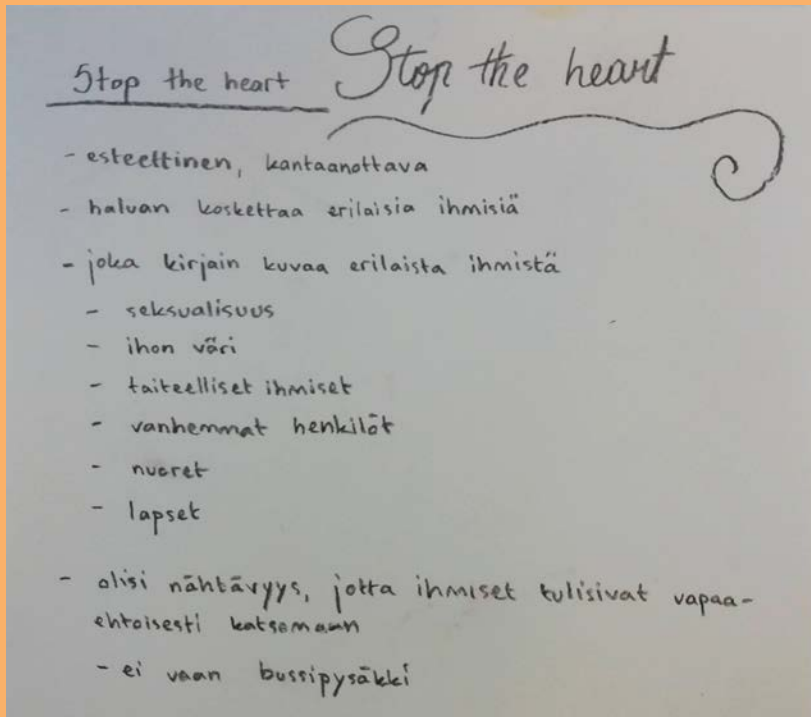 Stop the heart Stop the heart
- esteettinen, kantaanottava
- haluan koskettaa erilaisia ihmisiä
- joka kirjain kuvaa erilaista ihmistä
- seksualisuus
- ihon väri
- taiteelliset ihmiset
- vanhemmat henkilöt
- nuoret
- lapset
- olisi nähtävyys, jotta ihmiset tulisivat vapaa-
ehtoisesti katsomaan
- ei vaan bussipysäkki